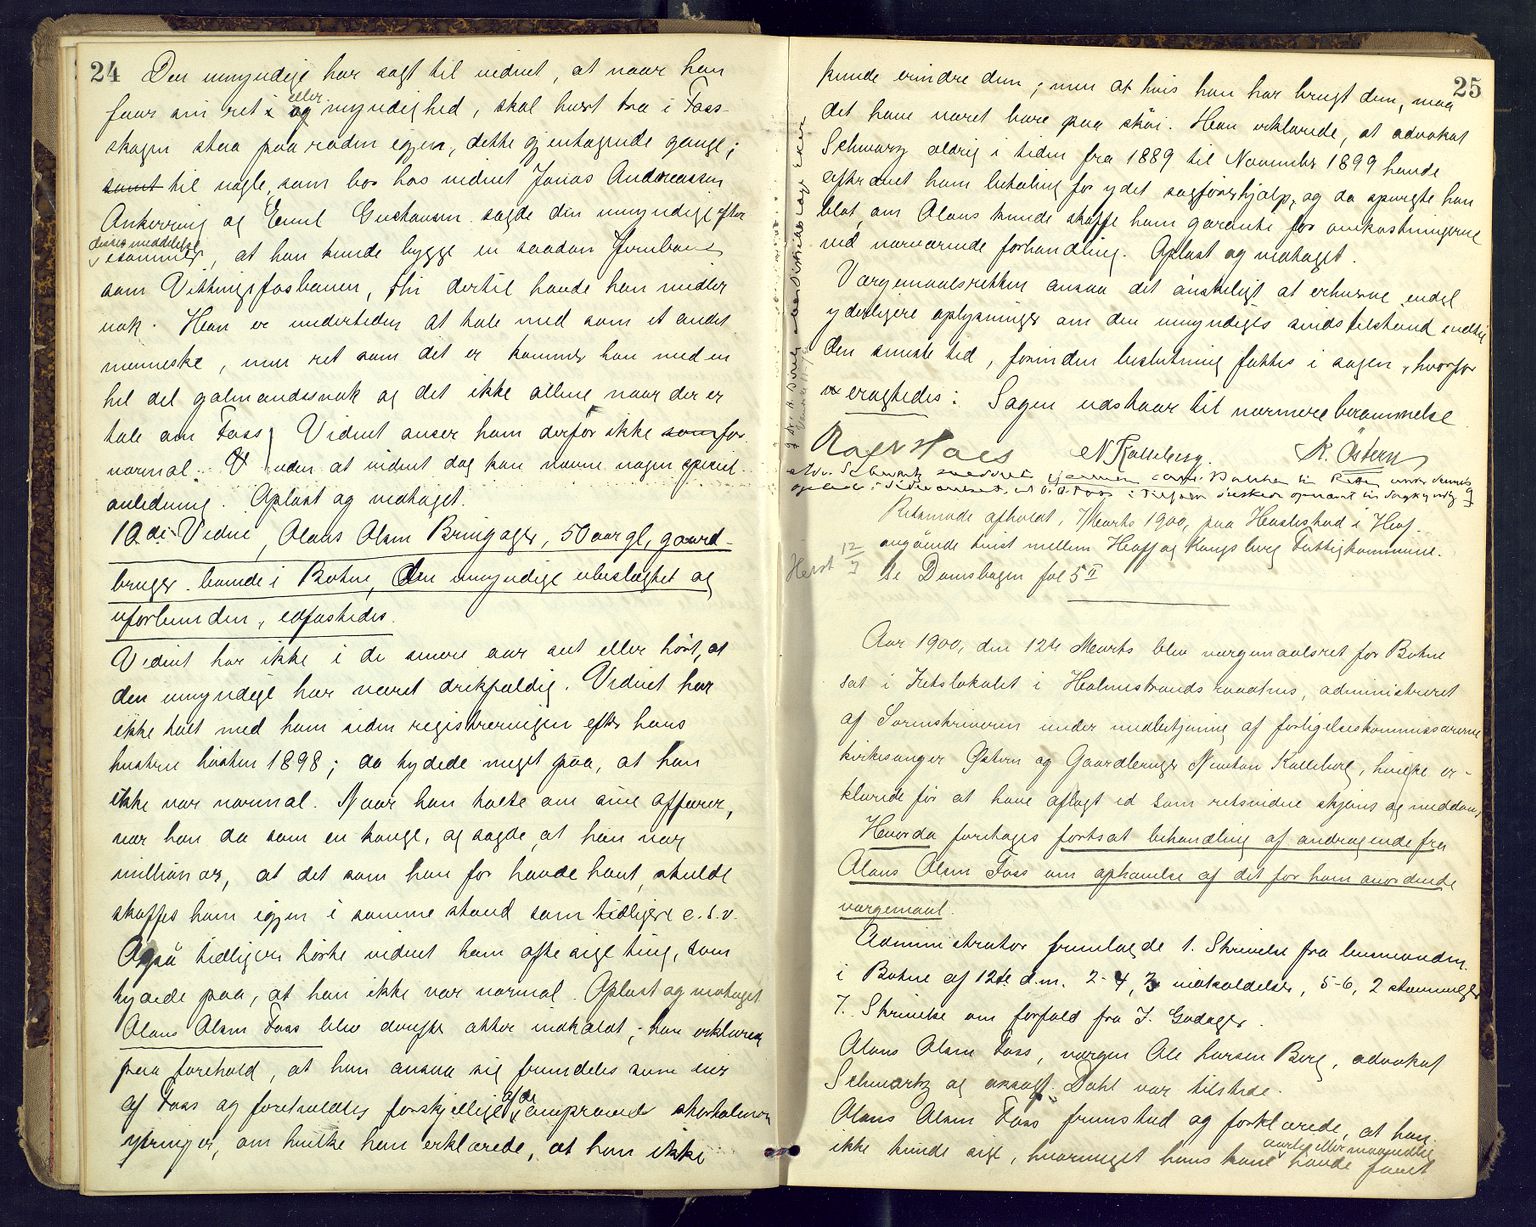 24
Den umyndige har sagt til vidnet, at naar han
faar sin ret i og eller myndighed, skal hvert tra i Foss
skogen staa paa roden igjen, dette gjentagende gange;
samt til nogle, som bor hos vidnet Jonas Andreassen
Ankerring og Emil Gustavsen sagde den umyndige efter
deres meddelelse
isommer, at han kunde bygge en saadan Jernbane
som Vittingfosbanen, thi dertil havde han midler
nok. Han er undertiden at tale med som et andet
menneske, men ret som det er kommer han med en
hel del galmandssnak og det ikke alene naar der er
tale om Foss; Vidnet anser ham derfor ikke som for
normal. uden at vidnet dog kan nævne nogen speciel
anledning. Oplæst og vedtaget.
10de Vidne, Olaus Olsen Bringager, 50 aar gl, gaard-
bruger boende i Botne, den umyndige ubeslægtet og
uforbunden, edfæstedes.
Vidnet har ikke i de senere aar set eller hørt, at
den umyndige har været drikfældig. Vidnet har
ikke talt med ham siden registreringen efter hans
hustru høsten 1898; da tydede meget paa, at han
ikke var normal. Naar han talte om sine affærer,
var han da som en konge, og sagde, at han var
millionær, at det som han før havde havt, skulde
skaffes ham igjen i samme stand som tidligere o.s.v.
Også tidligere hørte vidnet ham ofte sige ting, som
tydede paa, at han ikke var normal. Oplæst og vedtaget
Olaus Olsen Foss blev derefter atter indkaldt; han erklærede
paa forehold, at han ansaa sig fremdeles som eier
af Foss og foreholdtes forskjellige af de omprovede
ytringer, om hvilke han erklærede, at han ikke
25
kunde erindre dem; men at hvis han har brugt dem, maa
det have været bare paa skøi. Han erklærede, at advokat
Schwartz aldrig i tiden fra 1889 til November 1899 havde
afkrævet ham betaling for ydet sagførerhjælp, og da spurgte han
blot, om Olaus kunde skaffe ham garanti for omkostningerne
ved nærværende forhandling. Oplæst og vedtaget.
Værgemaalsretten ansaa det ønskeligt at erhverve endel
yderligere oplysninger om den umyndiges sindstilstand endtil
den seneste tid, forinden beslutning fattes i sagen, hvorfor
eragtedes: Sagen udstaar til nærmere berammelse.
N Kalleberg. A. Østern
Retsmøde afholdt, 7 Marts 1900, paa Haslestad i Hof.
angående tvist mellem Hof og Kongsberg Fattigkommune.
se Domsbogen fol 5 II
Aar 1900, den 12te Marts blev værgemaalsret for Botne
sat i Retslokalet i Holmestrands raadhus, administreret
af Sorenskriveren under medbetjening af forligelseskommissærerne
kirkesanger Østern og Gaardbruger Newton Kalleberg, hvilke er-
klærede før at have aflagt ed som retsvidne skjøns og meddom,
Hvorda foretoges fortsat behandling af andragende fra
Olaus Olsen Foss om ophævelse af det for ham anordnede
værgemaal.
Administrator fremlagde 1. Skrivelse fra lensmanden
i Botne af 12te d.m. 2-4, 3 indkaldelser, 5-6, 2 stævninger
7. Skrivelse om forfald fra J. Godager.
Olaus Olsen Foss, værgen Ole Larsen Berg, advokat
Schwartz og Dahl var tilstede.
Olaus Olsen Foss fremstod og forklarede, at han
aarlig eller maanedlig
ikke kunde sige, hvormeget hans kone havde faaet